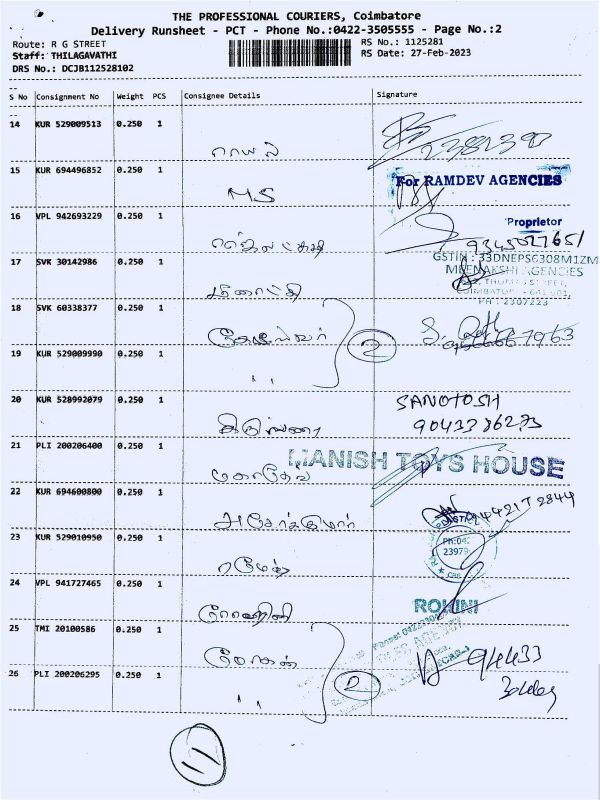 THE PROFESSIONAL COURIERS, Coimbatore
Delivery Runsheet - PCT - Phone No.:0422-3505555 - Page No.:2
Route: R G STREET
RS No.: 1125281
Staff: THILAGAVATHI
RS Date: 27-Feb-2023
DRS No.: DCJB112528102
S No Consignment No Weight PCS Consignee Details Signature
14 KUR 529009513 0.250 1
15 KUR 694496852 0.250 1
For RAMDEV AGENCIES
MS
16 VPL 942693229 0.250 1
Proprietor
17 SVK 30142986 0.250 1
GSTIN : 33DNEPS6308M1ZM
MEENAKSHI AGENCIES
PH : 2307223
மீனாட்சி
18 SVK 60338377 0.250 1
2
19 KUR 529009990 0.250 1
" "
20 KUR 528992079 0.250 1
SANOTOSH
21 PLI 200206400 0.250 1
MANISH TOYS HOUSE
மகாதேவ்
22 KUR 694600800 0.250 1
அசோக்குமார்
23 KUR 529010950 0.250 1
ரமேஷ்
24 VPL 941727465 0.250 1
ROHINI
ரோஹினி
25 TMI 20100586 0.250 1
மோகன்
94433
26 PLI 200206295 0.250 1
" "
2
11